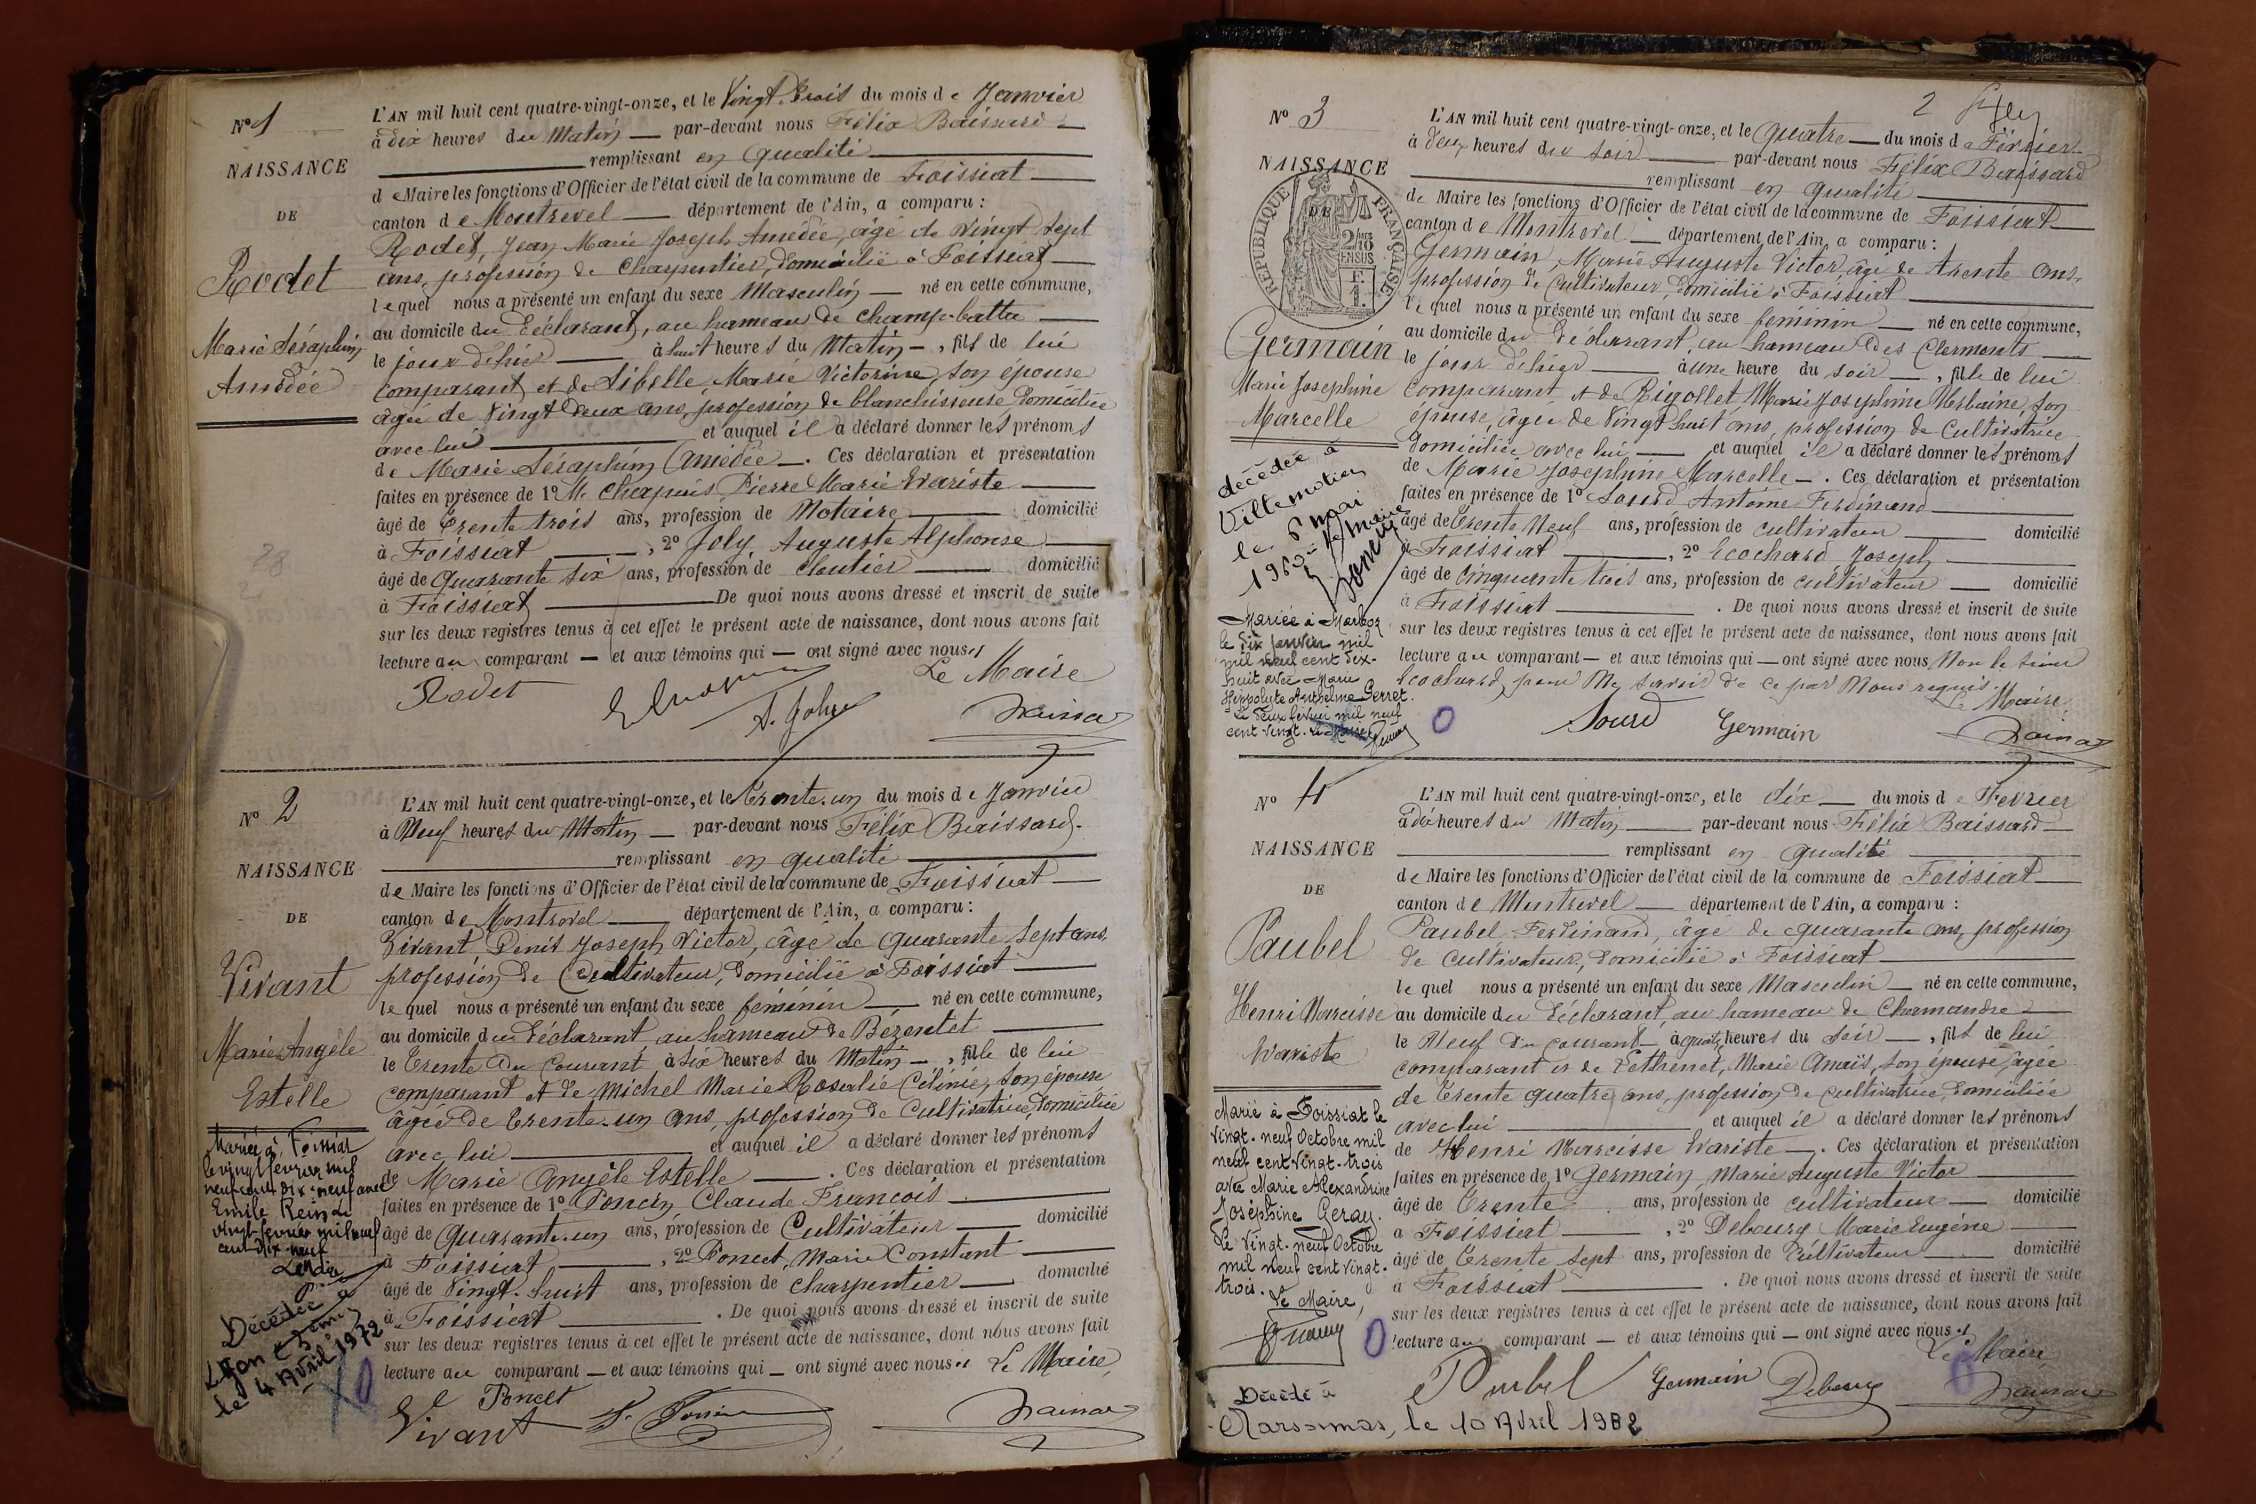 N° 1
NAISSANCE
DE
Rodet
Marie Séraphin
Amédée
L'AN mil huit cent quatre-vingt-onze, et le Vingt trois du mois de Janvier
à dix heures du Matin — par-devant nous Félix Baissard
remplissant en qualité
de Maire les fonctions d'Officier de l'état civil de la commune de Foissiat
canton de Montrevel — département de l'Ain, a comparu :
Rodet, Jean Marie Joseph Amédée, âgé de Vingt sept
ans, profession de Charpentier, domicilié à Foissiat
lequel nous a présenté un enfant du sexe Masculin — né en cette commune,
au domicile du Déclarant, au hameau de Champ-battu
le jour d'hier — à huit heures du Matin —, fils de lui
comparant et de Sibelle, Marie Victorine, son épouse
âgée de Vingt deux ans, profession de blanchisseuse, domiciliée
avec lui — et auquel il a déclaré donner les prénoms
de Marie Séraphin Amédée —. Ces déclaration et présentation
faites en présence de 1° Mr Chapuis, Pierre Marie Evariste
âgé de trente trois ans, profession de Notaire — domicilié
à Foissiat —, 2° Joly, Auguste Alphonse
âgé de quarante six ans, profession de cloutier — domicilié
à Foissiat — De quoi nous avons dressé et inscrit de suite
sur les deux registres tenus à cet effet le présent acte de naissance, dont nous avons fait
lecture au comparant — et aux témoins qui — ont signé avec nous
Le Maire
Rodet
N° 2
NAISSANCE
DE
Vivant
Marie Angèle
Estelle
Mariée à Foissiat
le vingt février mil
neuf cent dix-neuf avec
Emile
vingt février mil neuf
cent dix-neuf
Décédée à
Lyon 3ème
le 4 Avril 1972
L'AN mil huit cent quatre-vingt-onze, et le trente-un du mois de Janvier
à Neuf heures du Matin — par-devant nous Félix Baissard
remplissant en qualité
de Maire les fonctions d'Officier de l'état civil de la commune de Foissiat
canton de Montrevel — département de l'Ain, a comparu :
Vivant Denis Joseph Victor, âgé de quarante sept ans,
profession de Cultivateur, domicilié à Foissiat
lequel nous a présenté un enfant du sexe féminin — né en cette commune,
au domicile du Déclarant au hameau de Bézentet
le trente du Courant à six heures du Matin —, fille de lui
comparant et de Michel Marie Rosalie Célinie, son épouse
âgée de trente-un ans, profession de Cultivatrice, domiciliée
avec lui — et auquel il a déclaré donner les prénoms
de Marie Angèle Estelle — . Ces déclaration et présentation
faites en présence de 1° Poncin, Claude François
âgé de quarante-un ans, profession de Cultivateur — domicilié
à Foissiat —, 2° Poncet, Marie Constant
âgé de Vingt-huit ans, profession de charpentier — domicilié
à Foissiat — . De quoi nous avons dressé et inscrit de suite
sur les deux registres tenus à cet effet le présent acte de naissance, dont nous avons fait
lecture au comparant — et aux témoins qui — ont signé avec nous Le Maire,
Poncet
Vivant
2
N° 3
NAISSANCE
DE
REPUBLIQUE FRANÇAISE
2/10 EN SUS
Germain
Marie Josephine
Marcelle
décédée à
Villemotier
le 6 mai
le Maire
Mariée à Marboz
le dix janvier mil
mil neuf cent dix-
huit avec Marie
Hippolyte Anthelme Perret.
Le deux février mil neuf
cent vingt. Le Maire
L'AN mil huit cent quatre-vingt-onze, et le quatre — du mois de Février
à deux heures du soir — par-devant nous Félix Baissard
remplissant en qualité
de Maire les fonctions d'Officier de l'état civil de la commune de Foissiat
canton de Montrevel — département de l'Ain, a comparu :
Germain, Marie Auguste Victor, âgé de trente ans,
profession de Cultivateur, domicilié à Foissiat
lequel nous a présenté un enfant du sexe féminin — né en cette commune,
au domicile du Déclarant, au hameau des Clermonts
le jour d'hier — à une heure du soir —, fille de lui
Comparant et de Rigollet, Marie Joséphine Urbaine, son
épouse, âgée de Vingt huit ans, profession de Cultivatrice
domiciliée avec lui — et auquel il a déclaré donner les prénoms
de Marie Joséphine Marcelle —. Ces déclaration et présentation
faites en présence de 1° Sourd Antoine Ferdinand
âgé de trente Neuf ans, profession de cultivateur — domicilié
à Foissiat —, 2° Ecochard Joseph
âgé de Cinquante trois ans, profession de cultivateur — domicilié
à Foissiat — . De quoi nous avons dressé et inscrit de suite
sur les deux registres tenus à cet effet le présent acte de naissance, dont nous avons fait
lecture au comparant — et aux témoins qui — ont signé avec nous Non le sieur
Ecochard, pour ne savoir de ce par Nous requis.
Le Maire
Sourd Germain
N° 4
NAISSANCE
DE
Paubel
Henri Narcisse
Evariste
Marié à Foissiat le
Vingt-neuf Octobre mil
neuf cent vingt-trois
avec Marie Alexandrine
Joséphine Geray.
Le vingt-neuf Octobre
mil neuf cent vingt-
trois. Le Maire,
Décédé à
Marsonnas, le 10 Avril 1982
L'AN mil huit cent quatre-vingt-onze, et le dix — du mois de Fevrier
à dix heures du Matin — par-devant nous Félix Baissard
remplissant en qualité
de Maire les fonctions d'Officier de l'état civil de la commune de Foissiat
canton de Montrevel — département de l'Ain, a comparu :
Paubel Ferdinand, âgé de quarante ans, profession
de cultivateur, domicilié à Foissiat
lequel nous a présenté un enfant du sexe Masculin — né en cette commune,
au domicile du Déclarant, au hameau de Chamandre
le Neuf du courant à quatre heures du soir —, fils de lui
comparant et de Pethenet, Marie Anaïs, son épouse, âgée
de trente quatre ans, profession de cultivatrice, domiciliée
avec lui — et auquel il a déclaré donner les prénoms
de Henri Narcisse Evariste —. Ces déclaration et présentation
faites en présence de 1° Germain, Marie Auguste Victor
âgé de trente ans, profession de cultivateur — domicilié
à Foissiat —, 2° Debourg Marie Eugène
âgé de trente sept ans, profession de Cultivateur — domicilié
à Foissiat — . De quoi nous avons dressé et inscrit de suite
sur les deux registres tenus à cet effet le présent acte de naissance, dont nous avons fait
lecture au comparant — et aux témoins qui — ont signé avec nous
Le Maire
Paubel Germain Debourg